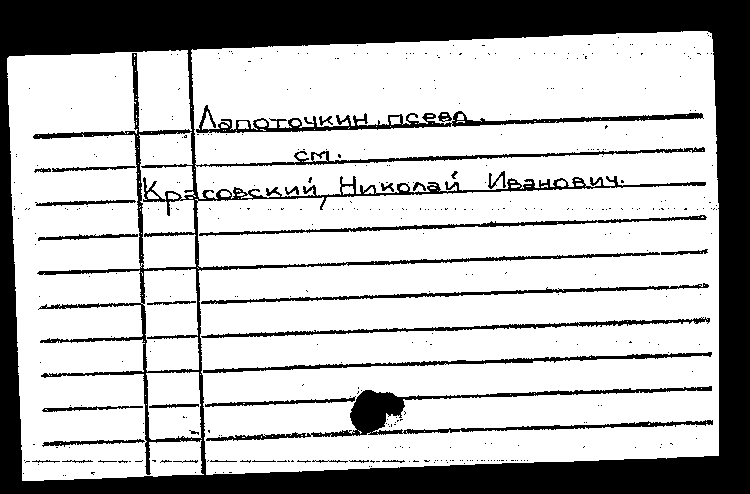 Лапоточкин, псевд.
см.
Красовский, Николай Иванович.